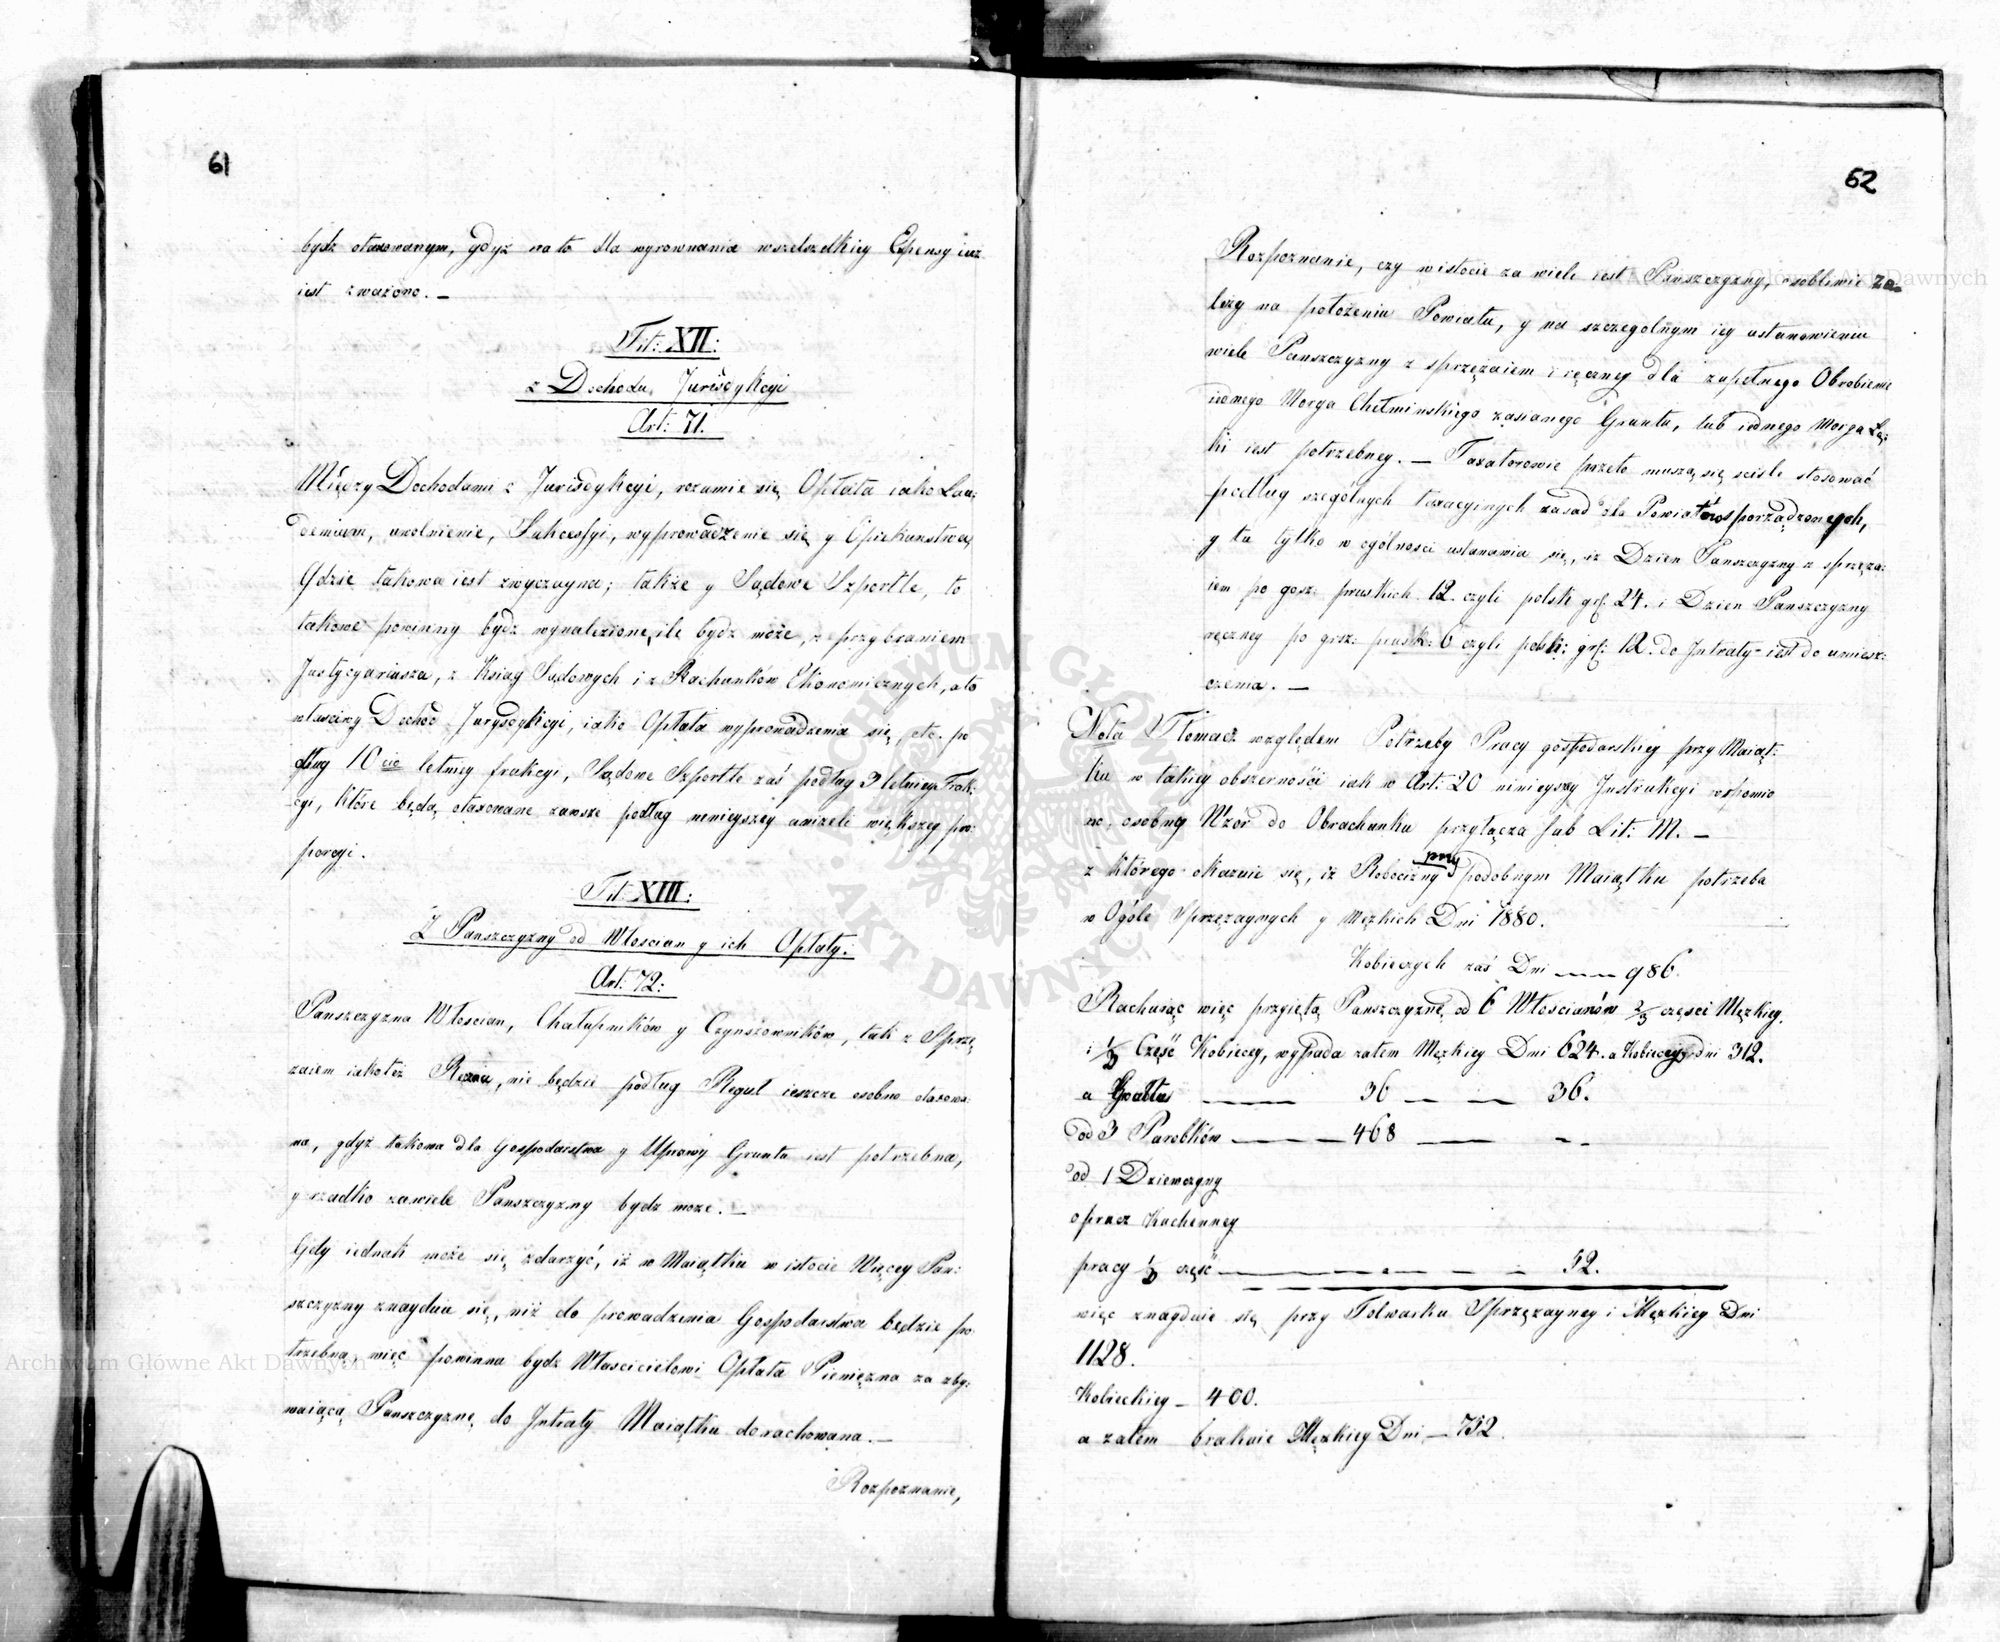 61
bydz otaxowanym, gdyż na to dla wyrownania wszelszelkiey Expensy iuż
iest zważono. —
Tit: XII:
z Dochodu Jurisdykcyi
Art: 71.
Między Dochodami z Jurisdykcyi, rozumie się Opłata iako Lau:
demium, uwolnienie, Sukcessyi, wyprowadzenie się y Opiekunstwa,
Gdzie takowa iest zwyczayna; także y Sądowe Szportle, to
takowe powinny bydz wynalezione, ile bydz może, z przybraniem
Justycyariusza, z Ksiąg Sądowych i z Rachunków Ekonomicznych, a to
własciwy Dochod Jurysdykcyi, iako Opłata wyprowadzenia się, etc. po
dług 10cio letniey frakcyi, Sądowe Szportle zaś podług 3 letniey Frak:
cyi, które będą otaxowane zawsze podług mnieyszey aniżeli większey pro:
porcyi.
Tit: XIII:
Z Panszczyzny od Włoscian y ich Opłaty:
Art: 72:
Panszczyzna Włoscian, Chałupników y Czynszowników, tak z Sprzę
zaiem iakoteż Ręczna, nie będzie podług Reguł ieszcze osobno otaxowa:
na, gdyż takowa dla Gospodarstwa y Uprawy Gruntu iest potrzebna,
y rzadko zawiele Panszczyzny bydz może. —
Gdy iednak może się zdarzyć, iż w Maiątku w istocie Więcey Pan:
szczyzny znayduie się, niż do prowadzenia Gospodarstwa będzie po
trzebna, więc powinna bydz Włascicielowi Opłata Pieniężna za zby:
waiącą Panszczyznę do Intraty Maiątku dorachowana. —
Rozpoznanie,
62
Rozpoznanie, czy w istocie za wiele iest Panszczyzny, osobliwie za:
leży na położeniu Powiatu, y na szczegolnym iey ustanowieniu
wiele Panszczyzny z sprzężaiem i ręczney dla zupełnego Obrobienia
iednego Morga Chełminskiego zasianego Gruntu, lub iednego Morga Łą:
ki iest potrzebney. — Taxatorowie przeto muszą się scisle stosować
podług szególnych taxacyinych zasad dla Powiatów sporządzonych,
y tu tylko w ogólnosci ustanawia się, iż Dzien Panszczyzny z sprzęża:
iem po grsz: pruskich 12. czyli polsk gr: 24. i Dzien Panszczyzny
ręczney po grsz: prusk: 6 czyli polsk: gr: 12. do Intraty iest do umiesz:
czenia. —
Nota Tłomacz względem Potrzeby Pracy gospodarskiey przy Maiąt:
ku w takiey obszerności iak w Art: 20 ninieyszey Instrukcyi wspomio
no, osobny Wzór do Obrachunku przyłącza sub Lit: M. —
z którego okazuie się, iż Robocizny przy podobnym Maiątku potrzeba
w Ogóle Sprzężaynych y Męzkich Dni 1880.
Kobieczych zaś Dni —— 986.
Rachuiąc więc przyiętą Panszczyznę od 6 Włoscianów 2/3 częsci Męzkiey,
i 1/3 Część Kobiecey, wypada zatem Męzkiey Dni 624. a Kobiecey dni 312.
a Gwałtu —— 36 —— 36.
od 3 Parobków —— 468 —— —
od 1 Dziewczyny
oprócz Kuchenney
pracy 1/3 część —— 52.
więc znayduie się przy Folwarku Sprzężayney i Męzkiey Dni
1128.
Kobieckiey — 400.
a zatem brakuie Męzkiey Dni — 752.